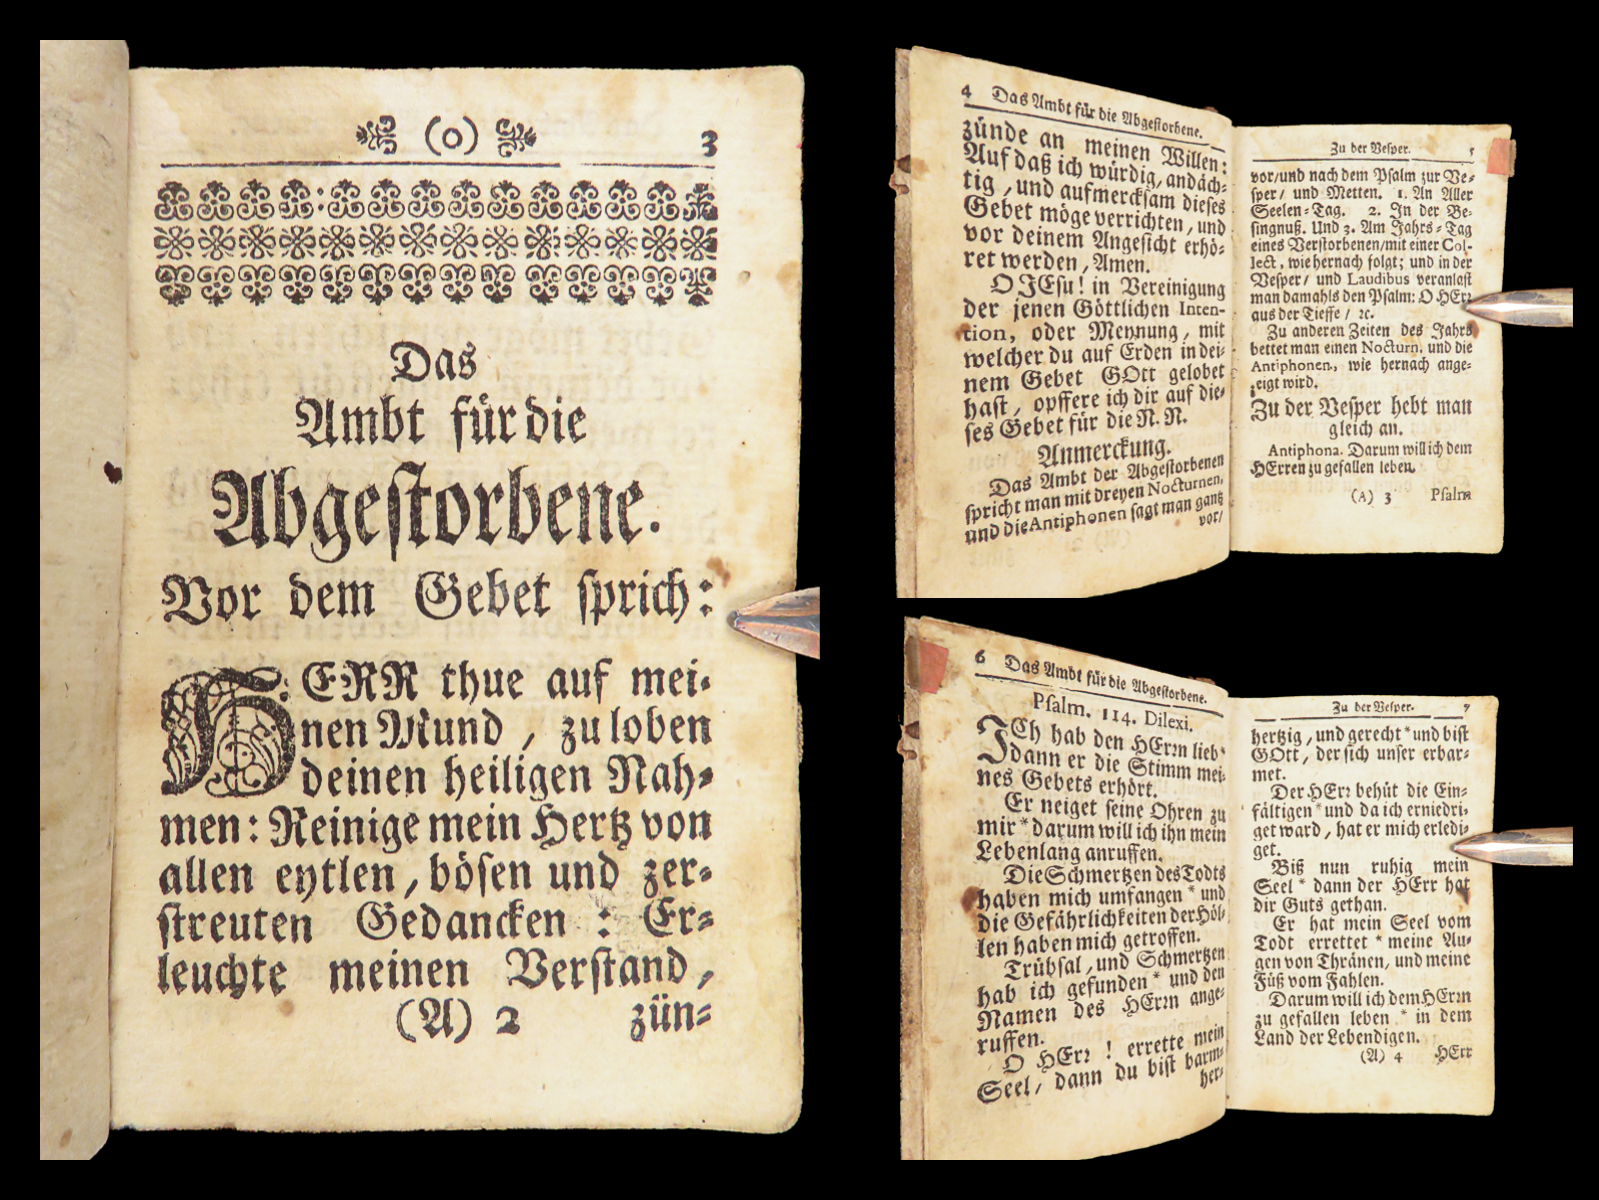 (o) 3
Das
Ambt für die
Abgestorbene.
Vor dem Gebet sprich:
HERR thue auf mei-
nen Mund, zu loben
deinen heiligen Nah-
men: Reinige mein Hertz von
allen eytlen, bösen und zer-
streuten Gedancken: Er-
leuchte meinen Verstand,
(A) 2 zün-
4 Das Ambt für die Abgestorbene.
zünde an meinen Willen:
Auf daß ich würdig, andäch-
tig, und aufmercksam dieses
Gebet möge verrichten, und
vor deinem Angesicht erhö-
ret werden, Amen.
O JEsu! in Vereinigung
der jenen Göttlichen Inten-
tion, oder Meynung, mit
welcher du auf Erden in dei-
nem Gebet GOtt gelobet
hast, opffere ich dir auf die-
ses Gebet für die N. N.
Anmerckung.
Das Ambt der Abgestorbenen
spricht man mit dreyen Nocturnen,
und die Antiphonen sagt man gantz
vor/
Zu der Vesper. 5
vor/und nach dem Psalm zur Ve-
sper/ und Metten. 1. An Aller
Seelen-Tag. 2. In der Be-
singnuß. Und 3. Am Jahrs-Tag
eines Verstorbenen/mit einer Col-
lect, wie hernach folgt; und in der
Vesper/ und Laudibus veranlast
man damahls den Psalm: O HErr
aus der Tieffe/ ꝛc.
Zu anderen Zeiten des Jahrs
bettet man einen Nocturn. und die
Antiphonen, wie hernach ange-
zeigt wird.
Zu der Vesper hebt man
gleich an.
Antiphona. Darum will ich dem
HErren zu gefallen leben.
(A) 3 Psalm
6 Das Ambt für die Abgestorbene.
Psalm. 114. Dilexi.
ICh hab den HErrn lieb*
dann er die Stimm mei-
nes Gebets erhört.
Er neiget seine Ohren zu
mir * darum will ich ihn mein
Lebenlang anruffen.
Die Schmertzen des Todts
haben mich umfangen * und
die Gefährlichkeiten der Höl-
len haben mich getroffen.
Trübsal, und Schmertzen
hab ich gefunden * und den
Namen des HErrn ange-
ruffen.
O HErr! errette mein
Seel/ dann du bist barm-
her-
Zu der Vesper. 7
hertzig, und gerecht * und bist
GOtt, der sich unser erbar-
met.
Der HErr behüt die Ein-
fältigen * und da ich erniedri-
get ward, hat er mich erledi-
get.
Biß nun ruhig mein
Seel * dann der HErr hat
dir Guts gethan.
Er hat mein Seel vom
Todt errettet * meine Au-
gen von Thränen, und meine
Füß vom Fahlen.
Darum will ich dem HErrn
zu gefallen leben * in dem
Land der Lebendigen.
(A) 4 HErr